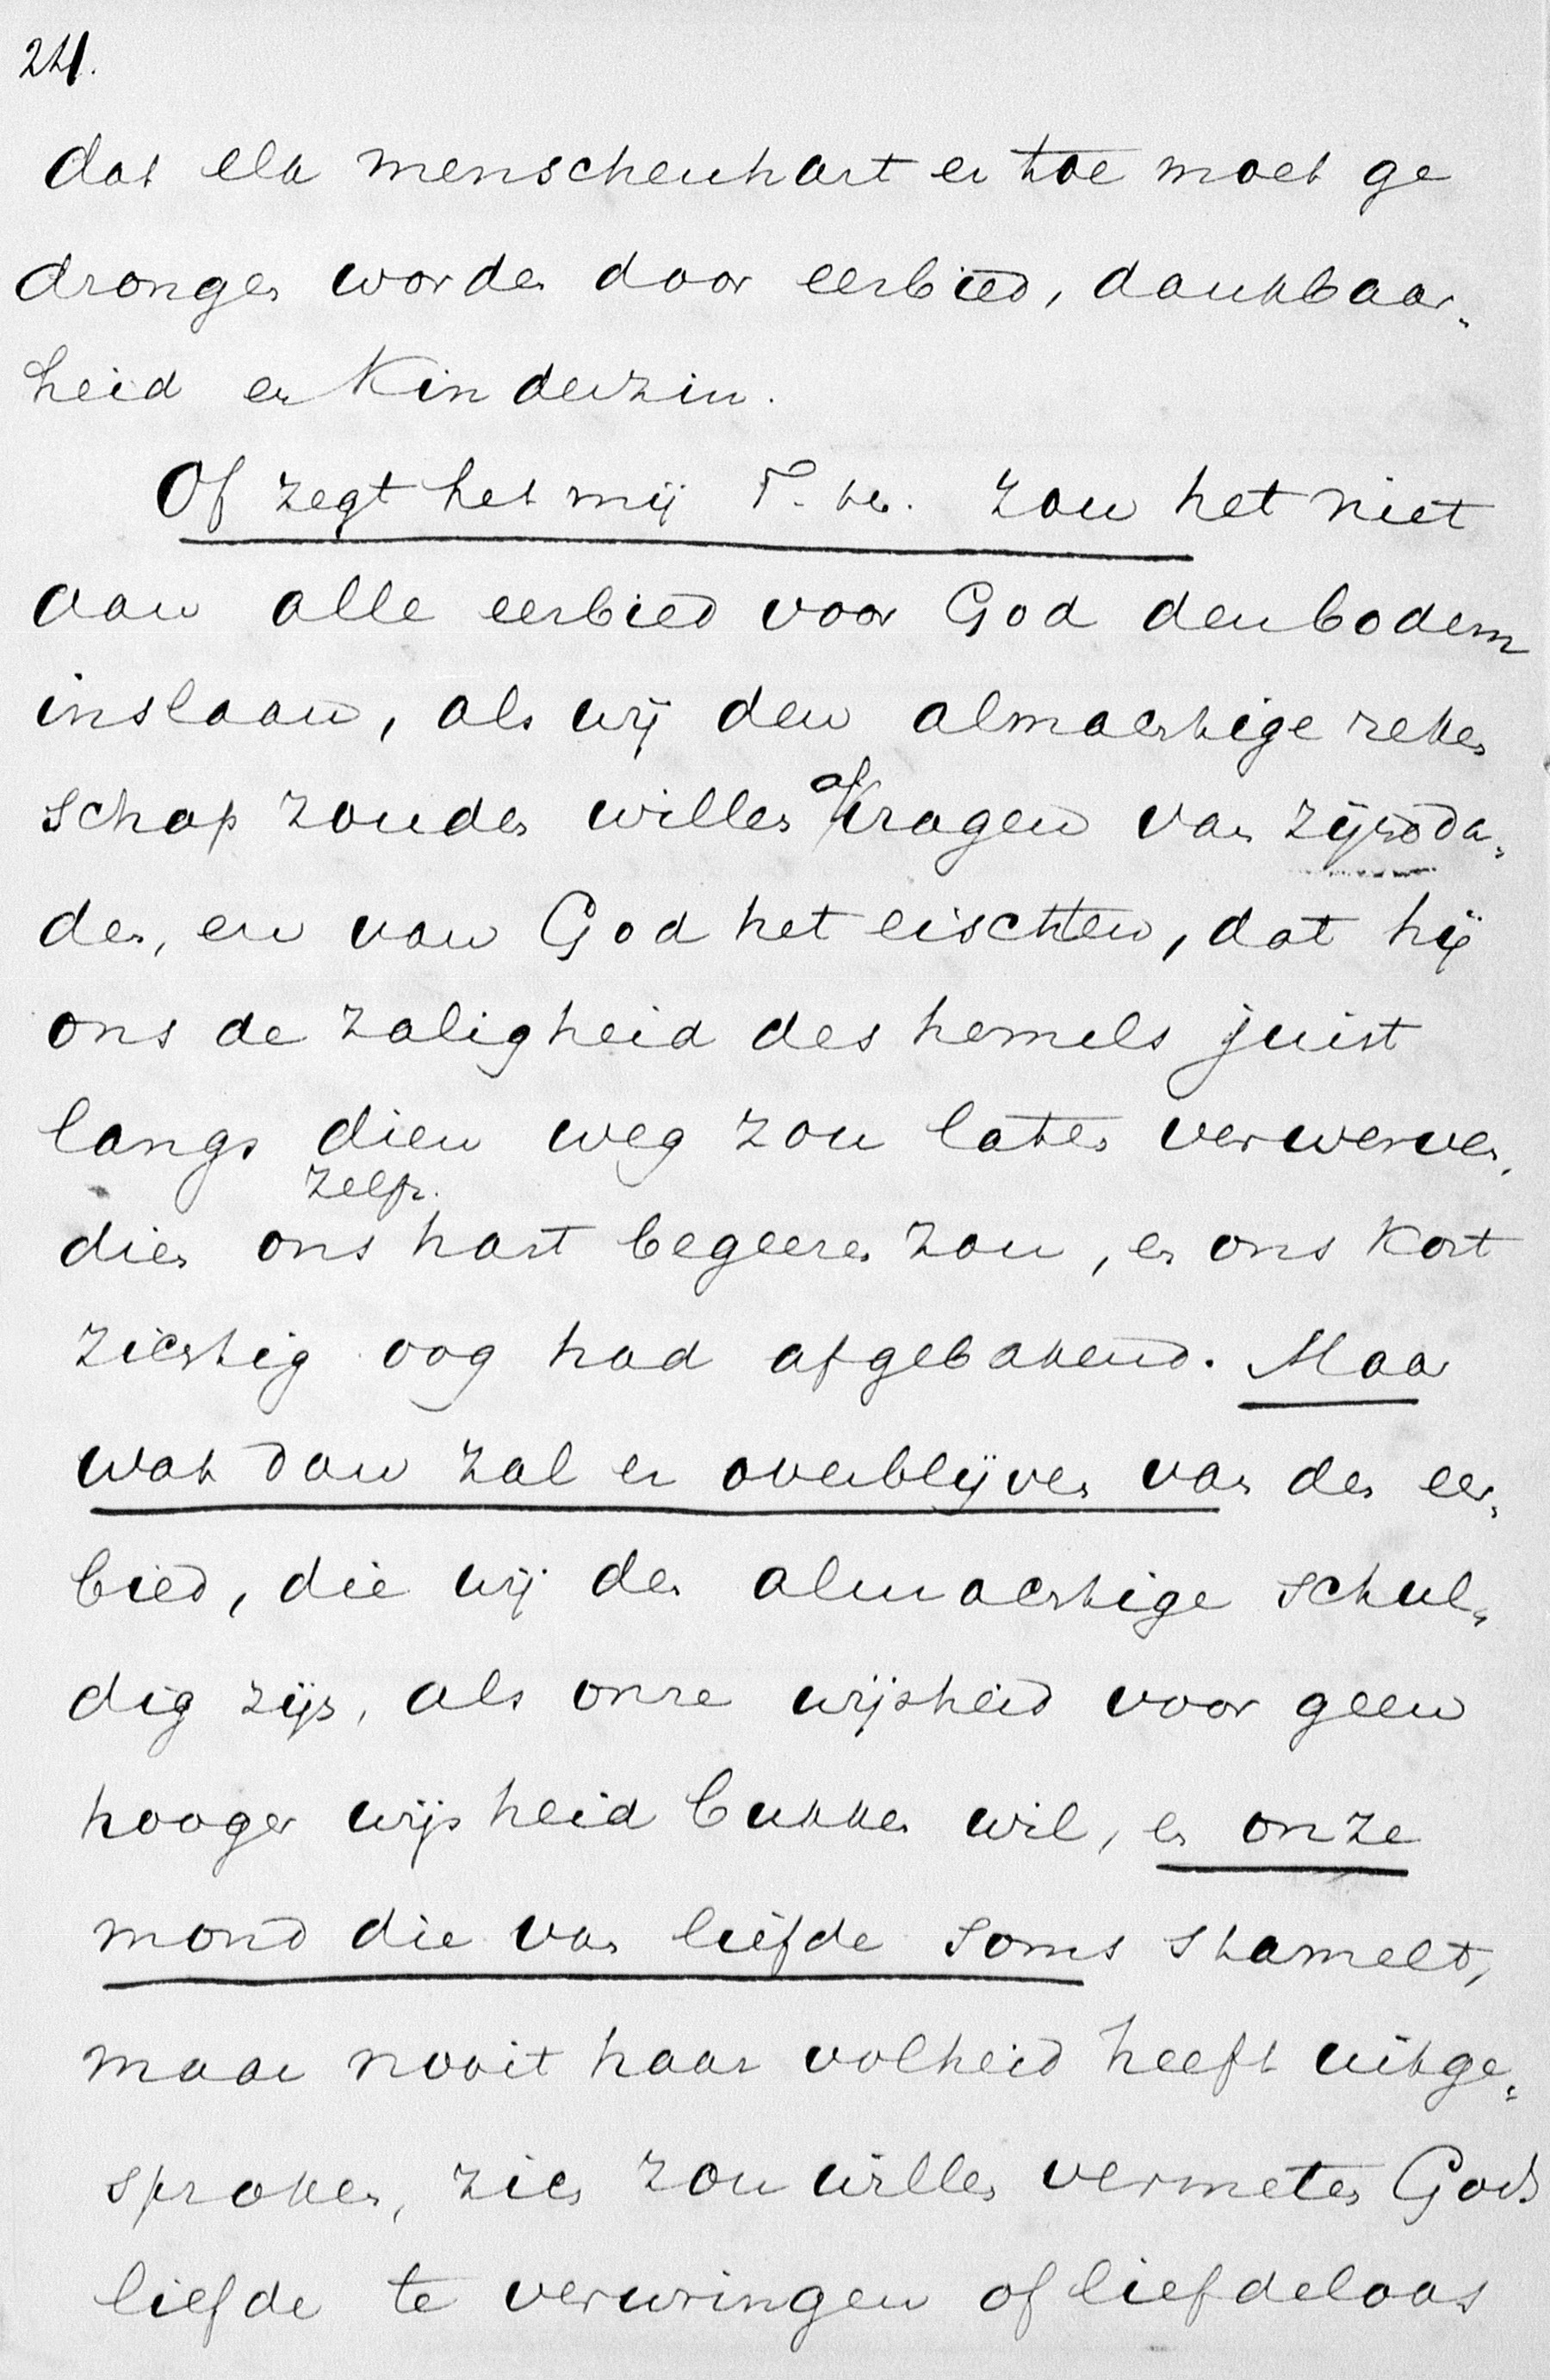 24.
dat elk menschenhart er toe moet ge
drongen worden door eerbied, dankbaar„
heid en kinderzin.
Of zegt het mij T. zou het niet
aan alle eerbied voor God den bodem
inslaan, als wij den almachtige reken
schap zouden willen afvragen van zijn da„
den, en van God het eischten, dat hij
ons de zaligheid des hemels juist
langs dien weg zou laten verwerven,
zelf
dien ons hart begeeren zou, en ons kort
zichtig oog had afgebakend. Maar
wat dan zal er overblijven van den eer„
bied, die wij den almachtige schul„
dig zijn, als onze wijsheid voor geen
hooger wijsheid bukken wil, en onze
mond die van liefde soms stameld,
maar nooit haar volheid heeft uitge„
sproken, zich zou willen vermeten Gods
liefde te verwringen of liefdeloos